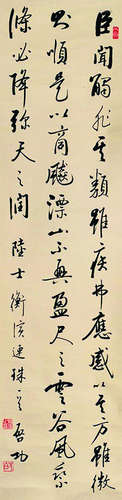 臣聞觸非其類雖疾弗應感以其方雖微
則順是以商飆漂山不興盈尺之雲谷風乘
條必降弥天之潤 陸士衡演連珠 啟功